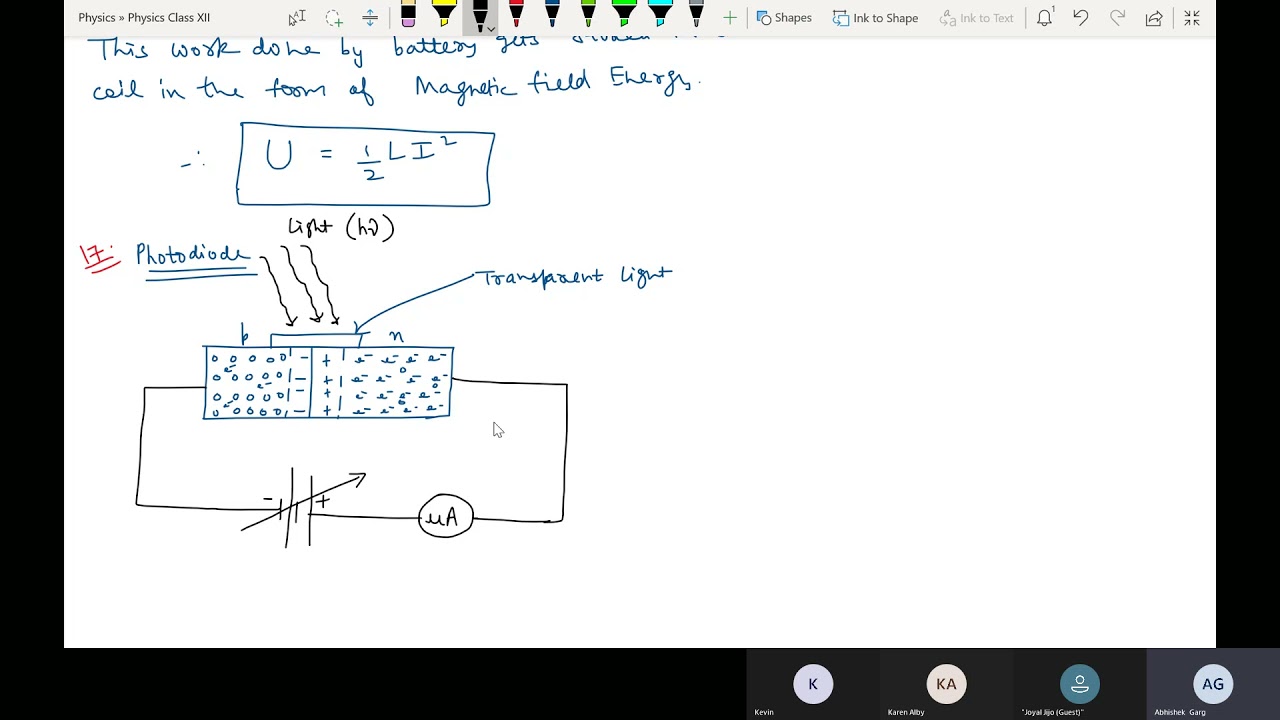 Physics » Physics Class XII
Shapes
Ink to Shape
Ink to Text
This work done by battery gets
coil in the form of Magnetic field Energy.
∴ U = 1/2 LI²
Light (hν)
17. Photodiode
Transparent Light
p n
- +
μA
K KA AG
Kevin Karen Alby "Joyal Jijo (Guest)" Abhishek Garg